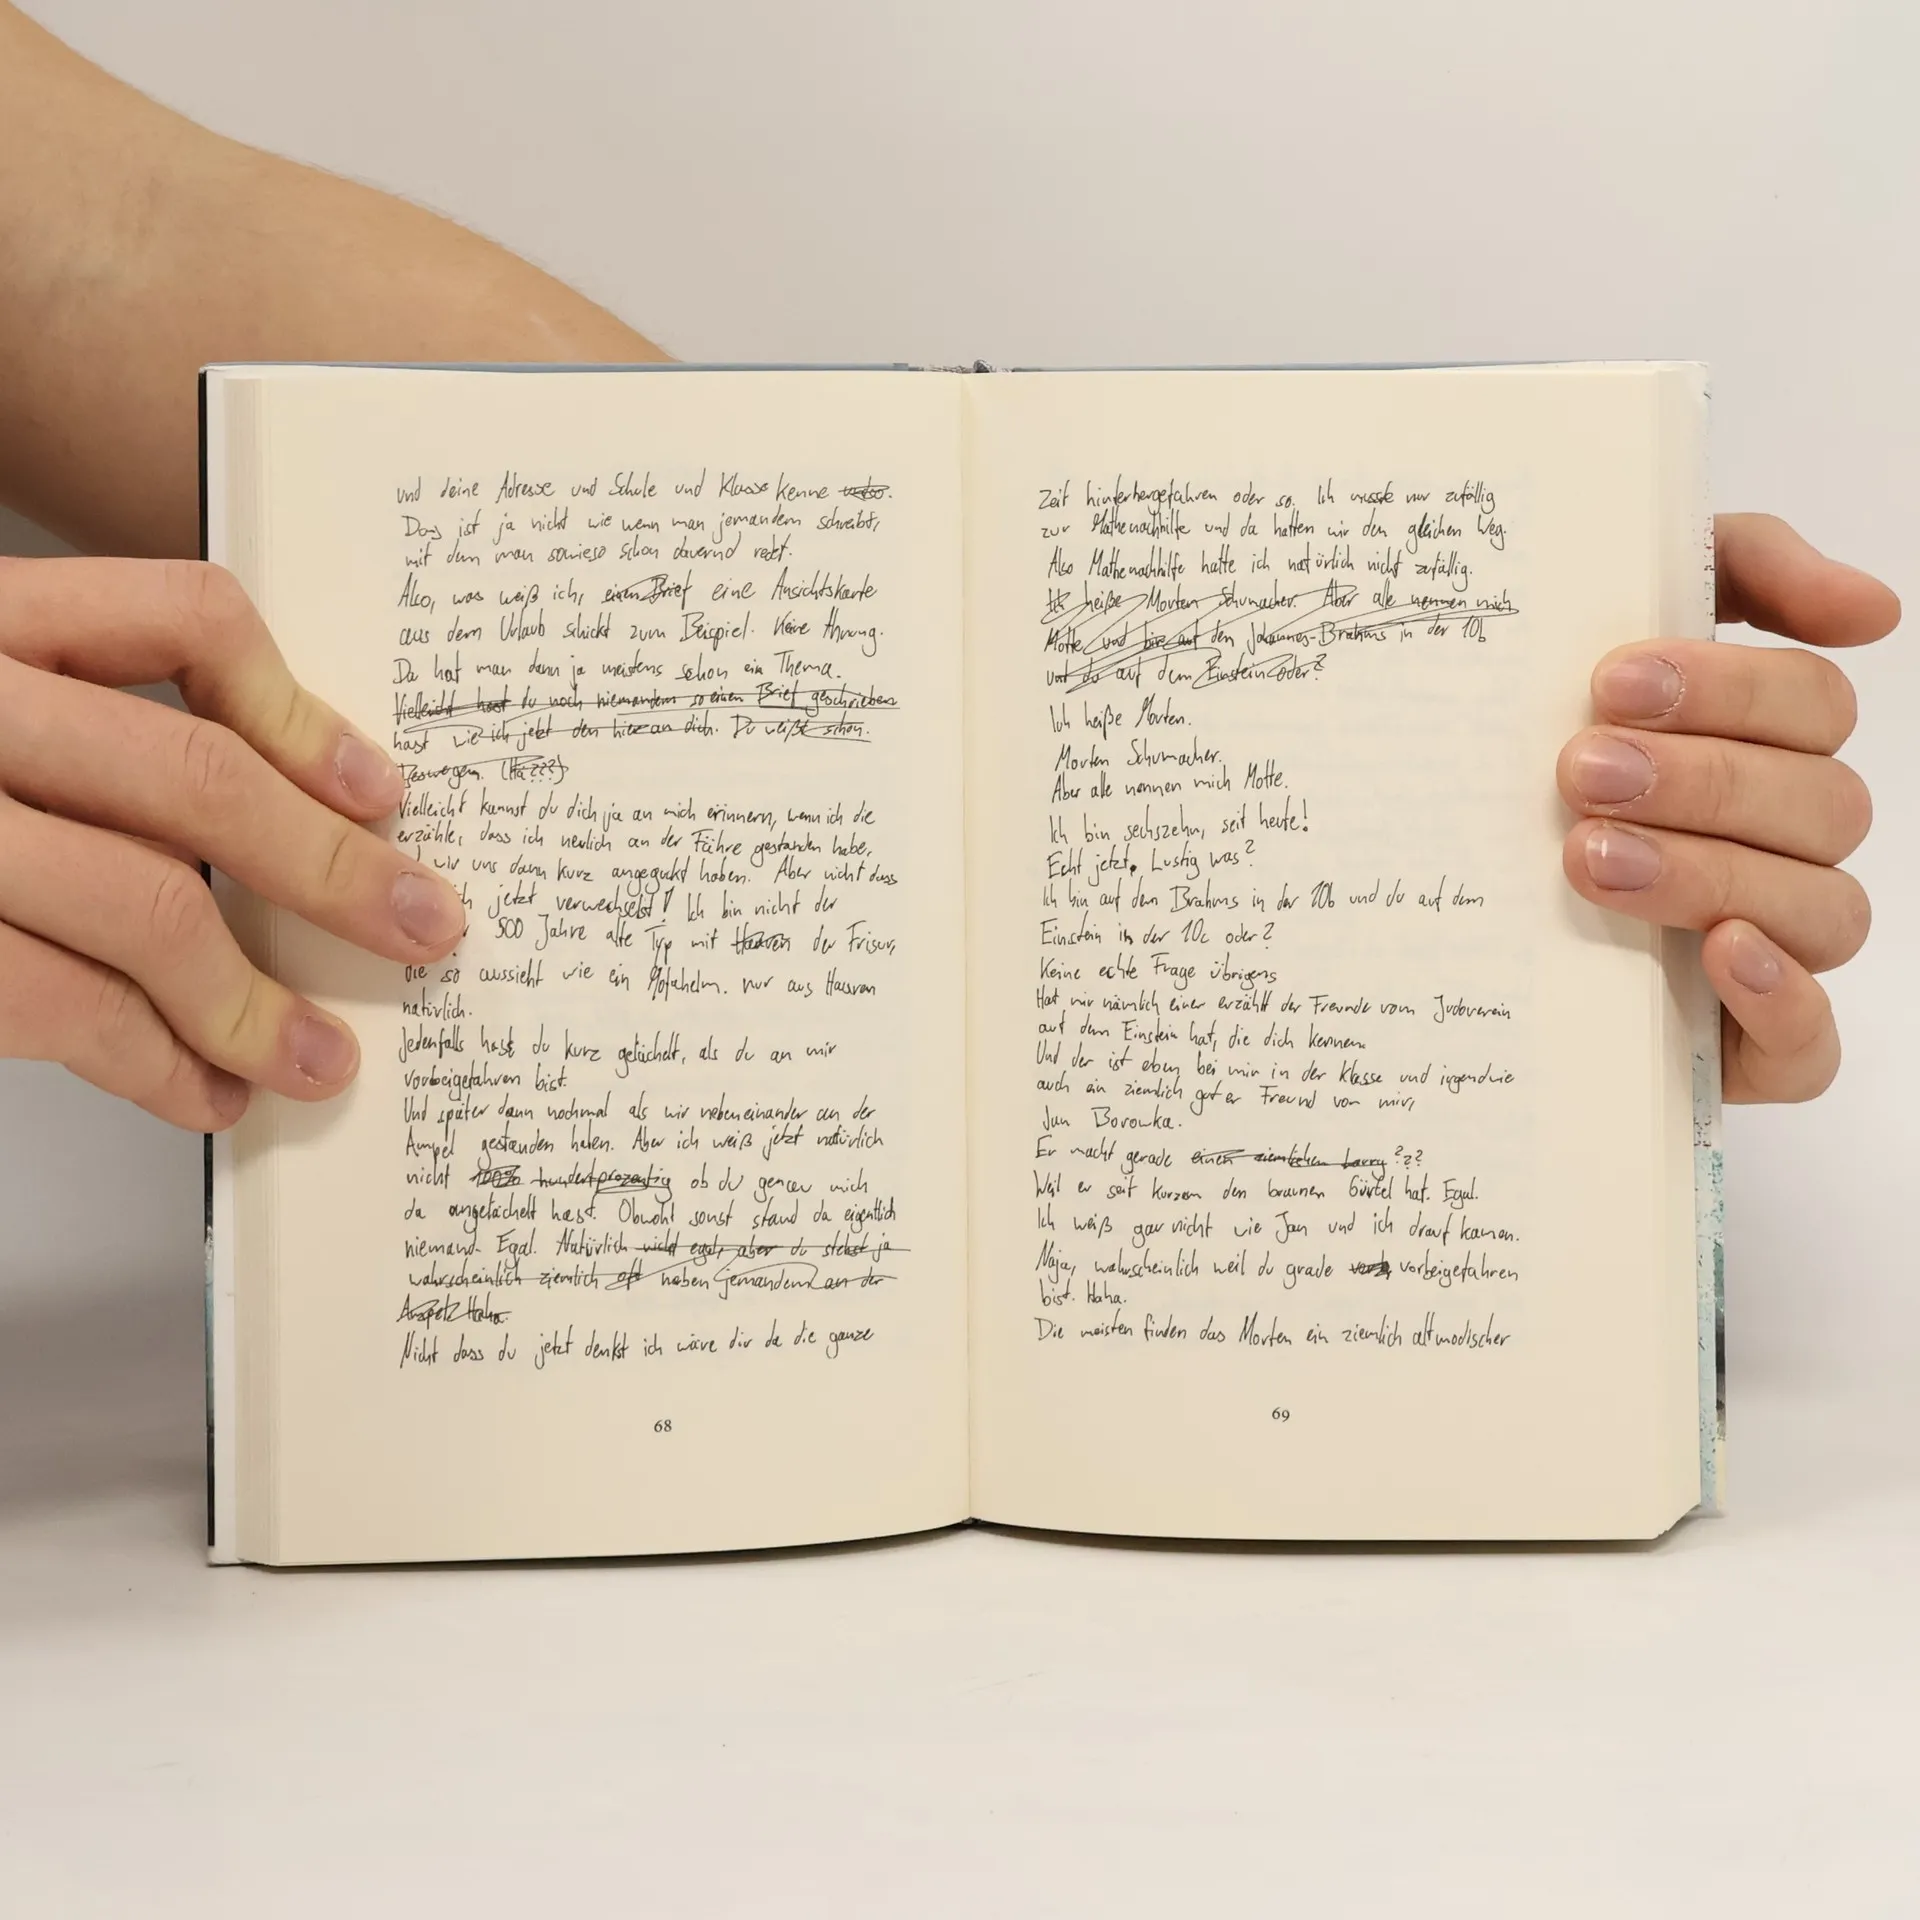 und deine Adresse und Schule und Klasse kenne
Das ist ja nicht wie wenn man jemandem schreibt,
mit dem man sowieso schon dauernd redet.
Also, was weiß ich, einen Brief eine Ansichtskarte
aus dem Urlaub schickt zum Beispiel. Keine Ahnung.
Da hat man dann ja meistens schon ein Thema.
Vielleicht hast du noch niemandem so einen Brief geschrieben
hast wie ich jetzt den hier an dich. Du weißt schon.
Deswegen. (Hä???)
Vielleicht kannst du dich ja an mich erinnern, wenn ich die
erzähle, dass ich neulich an der Fähre gestanden habe,
wir uns dann kurz angeguckt haben. Aber nicht dass
jetzt verwechselst! Ich bin nicht der
500 Jahre alte Typ mit Haaren der Frisur,
die so aussieht wie ein Mofahelm. nur aus Haaren
natürlich.
Jedenfalls hast du kurz gelächelt, als du an mir
vorbeigefahren bist.
Und später dann nochmal als wir nebeneinander an der
Ampel gestanden haben. Aber ich weiß jetzt natürlich
nicht 100% hundertprozentig ob du genau mich
da angelächelt hast. Obwohl sonst stand da eigentlich
niemand. Egal. Natürlich nicht egal, aber du stehst ja
wahrscheinlich ziemlich oft neben jemandem an der
Ampel. Haha.
Nicht dass du jetzt denkst ich wäre dir da die ganze
68
Zeit hinterhergefahren oder so. Ich musste nur zufällig
zur Mathenachhilfe und da hatten wir den gleichen Weg.
Also Mathenachhilfe hatte ich natürlich nicht zufällig.
Ich heiße Morten Schumacher. Aber alle nennen mich
Motte und bin auf den Johannes-Brahms in der 10b
und du auf dem Einstein oder?
Ich heiße Morten.
Morten Schumacher.
Aber alle nennen mich Motte.
Ich bin sechszehn, seit heute!
Echt jetzt. Lustig was?
Ich bin auf dem Brahms in der 10b und du auf dem
Einstein in der 10c oder?
Keine echte Frage übrigens
Hat mir nämlich einer erzählt der Freunde vom Judoverein
auf dem Einstein hat, die dich kennen.
Und der ist eben bei mir in der Klasse und irgendwie
auch ein ziemlich guter Freund von mir,
Jan Borowka.
Er macht gerade einen ziemlichen Larry ???
Weil er seit kurzem den braunen Gürtel hat. Egal.
Ich weiß gar nicht wie Jan und ich drauf kamen.
Naja, wahrscheinlich weil du grade vorbeigefahren
bist. Haha.
Die meisten finden das Morten ein ziemlich altmodischer
69